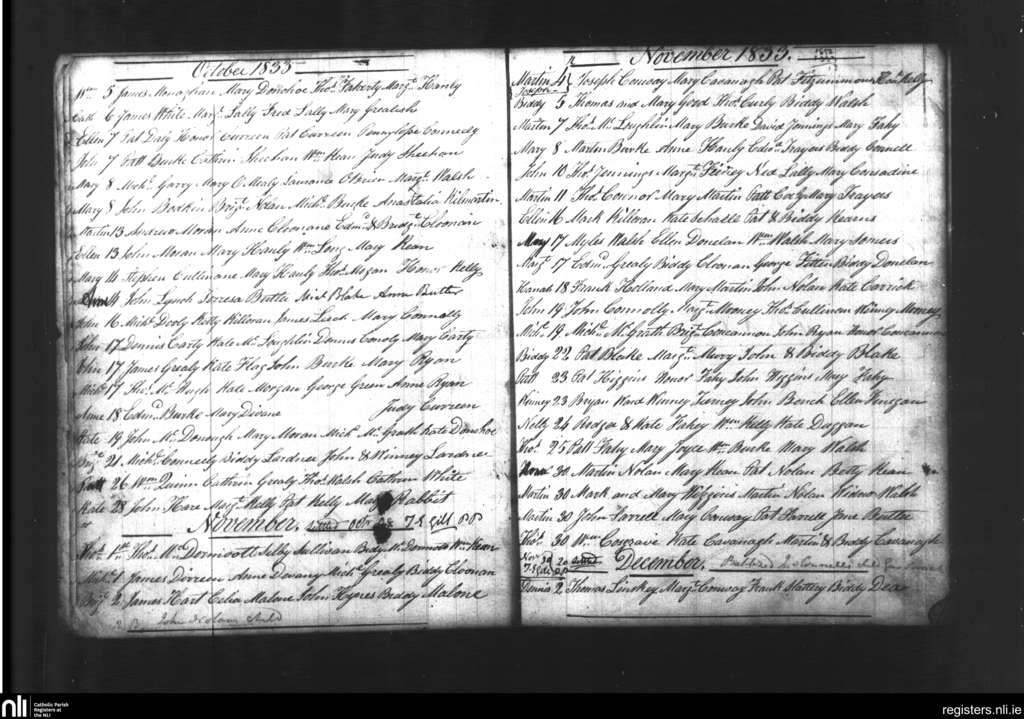 October 1833
Wm 5 James Monaghan Mary Donohoe Thos Flaherty Margt Hanly
6 James White Margt Lally Fred Lally Mary Grealish
Ellen 7 Pat Daly Honor Curreen Pat Curreen Pennylope Connedy
7 Patt Burke Cathrin Sheehan Wm Kean Judy Sheehan
Mary 8 Michl Garry Mary O Mealy Laurance O Brien Margt Walsh
Mary 8 John Bodkin Bridgt Nolan Michl Burke Anastatia Kilmartin
Martin 13 Andrew Moran Anne Cloonane Edmd & Bridgt Cloonan
Ellen 13 John Moran Mary Hanly Wm Long Mary Kean
Mary 14 Stephen Cullinane Mary Hanly Thos Mogan Honor Kelly
John Lynch Teresa Butler Blake Anne Butler
John 16 Michl Dooly Kitty Killoran James Leech Mary Connolly
John 17 Dennis Carty Kate Mc Loughlin Dennis Conoly Mary Carty
17 James Grealy Kate Flag John Burke Mary Ryan
Michl 17 Thos Mc Hugh Kate Morgan George Green Anne Ryan
Anne 18 Edmd Burke Mary Divane Judy Curreen
Kate 19 John Mc Donough Mary Moran Michl Mc Grath Kate Donohoe
Bridgt 21 Michl Connedy Biddy Lardner John & Winney Lardner
Patt 26 Wm Quinn Cathrin Grealy Thos Walsh Cathrin White
Kate 28 John Hare Margt Kelly Pat Kelly Mary Rabbit
November. Octr 28 T. S gill PP
Thos 1st Thos Mc Dermott Selby Sullivan Bidy Mc Dermott Wm Kean
Michl 1 James Dirreen Anne Dovany Michl Grealy Biddy Cloonan
Bridgt 2 James Hart Celia Malone John Hynes Biddy Malone
John Nolan child
November 1833.
Martin 4 Joseph Conway Mary Cavanagh Pat Fitzsimmons Kelly
Joseph
Biddy 5 Thomas and Mary Good Thos Curly Biddy Walsh
Martin 7 Thos Mc Loughlin Mary Burke David Jennings Mary Fahy
Mary 8 Martin Burke Anne Hanly Edwd Trayers Biddy Connell
John 10 Thos Jennings Margt Fairey Ned Lally Mary Considine
Martin 11 Thos Connor Mary Martin Patt Coy Mary Trayers
Ellen 16 Mark Killoran Kate Pat & Biddy Kearns
Mary 17 Myles Walsh Ellen Donelan Wm Walsh Mary Somers
Margt 17 Edmd Grealy Biddy Cloonan George Fitten Biddy Donelan
Hannah 18 Frank Holland Mary Martin John Nolan Kate Carrick
John 19 John Connolly Margt Money Thos Cullinan Winney Money
Michl 19 Michl Mc Grath Bridgt Concannon John Ryan Honor Concannon
Biddy 22 Pat Blake Margt Merry John & Biddy Blake
Patt 23 Pat Higgins Honor Fahy John Higgins Mary Fahy
Winney 23 Bryan Ward Winney Tierney John Bench Ellen Finegan
Kelly 24 Rodger & Kate Fahey Wm Kelly Kate Duggan
Thos 25 Patt Fahy Mary Joyce Wm Burke Mary Walsh
30 Martin Nolan Mary Kean Pat Nolan Betty Kean
Martin 30 Mark and Mary Higgins Martin Nolan Widow Walsh
Martin 30 John Farrell Mary Conway Pat Farrell Jane Butler
Thos 30 Wm Cosgrave Kate Cavanagh Martin & Biddy Cavanagh
Novr 30
T. S gill PP December. Baptised Connells child
2 Thomas Linskey Margt Conway Frank Slattery Biddy Dea
nli
Catholic Parish
Registers at
the NLI
registers.nli.ie